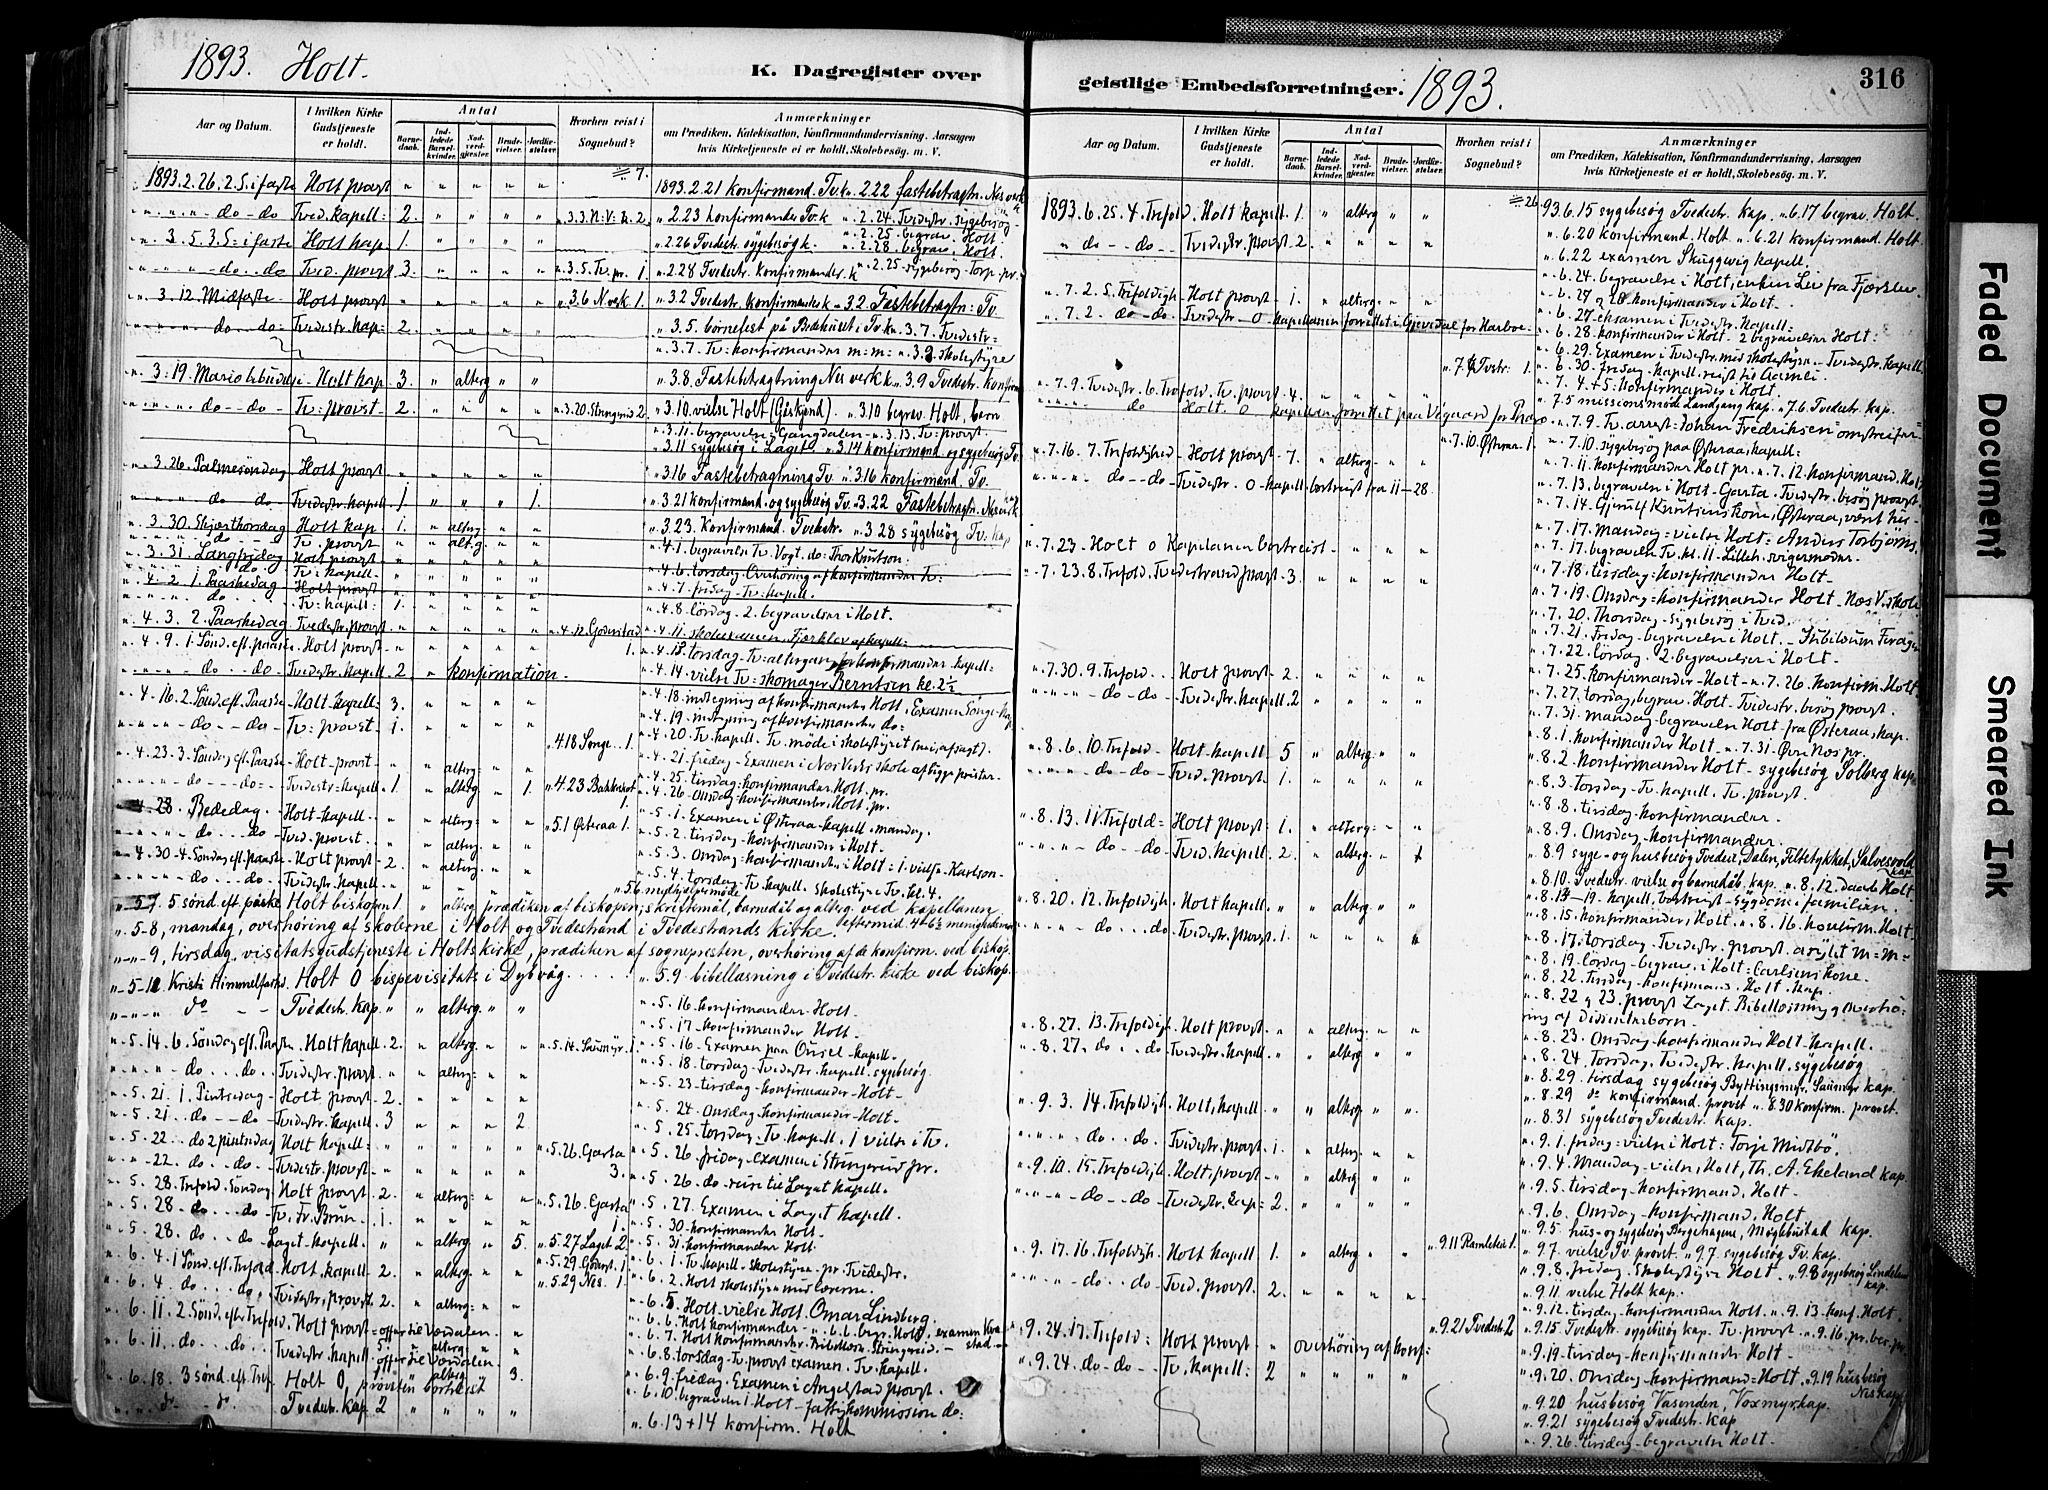 1893. Holt.
K. Dagregister over
geistlige Embedsforretninger.
1893.
316
Aar og Datum.
I hvilken Kirke Gudstjeneste er holdt.
Antal
Barnedaab.
Indledede Barselkvinder.
Nadverdgjester.
Brudevielser.
Jordfæstelser.
Hvorhen reist i Sognebud?
Anmærkninger
om Prædiken, Katekisation, Konfirmandundervisning, Aarsagen
hvis Kirketjeneste ei er holdt, Skolebesøg. m. V.
1893.2.26. 2.S. i faste Holt provst " " " " " 1893.2.21 konfirmand. Tv.k. 2.22 fastebetragtn. Nes verk
" " " " do - do Tved. kapell: 2. " " " " " 3.3. N.V. k. 2 " 2.23 konfirmander Tv.k " 2.24. Tvedestr. sygebesøg
" 3.5. 3.S. i faste Holt kap 1. " " " " " 2.25 begrav. Holt.
" 2.26 Tvedestr. sygebesøg k. " 2.28. begrav. Holt.
" " " " do.. do Tved. provst 3. " " " " " 3.5. Tv. pr. 1. " 2.28 Tvedestr. konfirmander. k " 2.25 sygebesøg Torp. pr.
" 3.12. Midfaste Holt provst " " " " " " 3.6 N.verk 1. " 3.2 Tvedestr. konfirmander k " 3.2. Fastebetragtn: Tv
" " " do - do: Tvedestr. kap: 2. " " " " " 3.5. børnefest på Bedehuset i Tv. k " 3.7. Tvedestr:
" 3.7. Tv: konfirmander m: m: " 3.9 skolestyre
" 3.19. Maria budsk. Holt kap 3. " alterg " " " 3.8. Fastebetragtning Nes verk k " 3.9 Tvedestr. konfirm
" " " do - do - Tv: provst - 2. " " " " " 3.20. 2. " 3.10. vielse Holt " 3.10 begrav. Holt. barn
" 3.11. begravelse " 3.13. Tv: provst.
" 3.11 sygebesøg i Laget " 3.14 konfirmand og sygebesøg Tv.
" 3.26. Palmesøndag Holt provst " " " " " " 3.16 Fastebetragtning Tv " 3.16 konfirmand. Tv.
" " " do do. Tvedestr. kapell 1. " " " 1. " 3.21 konfirmand. og sygebesøg Tv. " 3.22 Fastebetragtn. Nesverk
" 3.30. Skjærthorsdag Holt kap 1. " alterg: " " " 3.23. Konfirmand. Tvedestr. " 3.28 sygebesøg Tv. kap
do - Tv. provst " " alt.g. " "
" 3.31. Langfridag Holt provst " 4.1. begravelse Tv. Vogt. do: Thor Knutson.
do Tv: kapell " 4.6. torsdag. Overhøring af konfirmander Tv:
" 4.2. 1. Paaskedag Holt provst " 4.7. fredag. Tv. kapell.
do. Tv: kapell: 1. " 4.8. lördag - 2. begravelser i Holt.
" 4.3. 2. Paaskedag Tvedestr. provst. " 4.12 Goderstad 1. " 4.11. skoleexamen, Fjærkleiv af kapell:
" 4.9. 1. Sönd. eft. paaske Holt provst " 4.13. torsdag. Tv: altergang for konfirmander. kapell:
do. do. Tvedestr. kapell 2 " konfirmation. " 4.14. vielse Tv: skomager Berntsen kl. 2½
" 4.16. 2. Sönd. eft. Paaske Holt. kapell: 3. " 4.18. indtegning af konfirmander Holt. Examen Songe. kap.
" " do - do - Tv: provst 1. " 4.19. indtegning af konfirmander do:
" 4.18 Songe. 1. " 4.20. Tv. kapell. Tv. møde i skolestyret (nei, afsagt).
" 4.23. 3. Söndag eft. Paaske Holt - provst " " alterg " " " 4.21. fredag - Examen i Nes Verks skole af begge prester.
" " do - do - Tvedestr. kapell 1 " alterg. " 1. " 4.23 Bakkekot 1 " 4.25. tirsdag: konfirmander Holt. pr.
" 4.26. Onsdag: konfirmander. Holt. pr.
4.28. Bededag. Holt - kapell. " " alterg: " " " 5.1 Østeraa 1. " 5.1. Examen i Østeraa. kapell. mandag.
" " do... do Tved. provst. " " alterg " " " 5.2. tirsdag. konfirmander i Holt.
" 4.30. 4. Søndag eft. paaske Holt provst 2. " alterg. " 5.3. Onsdag: konfirmander i Holt: 1. vielse Karlson.
" " do... do Tvedestr. kapell " 5.4. torsdag Tv. kapell. skolestyre Tv. kl. 4.
" 5.6. medhjælpermøde
" 5.7. 5 sönd. eft. påske Holt biskopen 1. " alterg prædiken af biskopen; skriftemål, barnedåb og alterg. ved kapellanen
" 5-8, mandag, overhøring af skolerne i Holt og Tvedestrand i Tvedestrands kirke.
" - 9, tirsdag, visitatsgudstjeneste i Holts kirke, prædiken af sognepresten, overhøring af de konfirm. ved biskop
" 5-11 Kristi Himmelfartsd. Holt 0 bispevisitats i Dybvåg...... " 5.9 bibellæsning i Tvedestr. kirke ved biskop.
do - - Tvedestr. kap. " " alterg. " " " 5.16. konfirmander Holt.
" 5.17. konfirmander Holt.
" 5.14. 6. Søndag eft. Paaske Holt kapell 2. " alterg. " " " 5.14. Saumyr. 1. " 5.16. Examen paa Ousel - kapell.
" " do... do. Tvedestr. provst. " " alterg: " " " 5.18. torsdag - Tvedestr. kapell. sygebesøg.
" 5.21. 1. Pintsedag - Holt. provst 2. " 5.23. tirsdag - konfirmander - Holt -
" 5.21. do - do - Tvedestr. kapell. 3 " " " 2 " 5.24. Onsdag konfirmander - Holt.
" 5.22. do 2 pintsdag Holt kapell: " " " " " " 5.26. Garta 3. " 5.25. torsdag. Tv. kapell. 1 vielse i Tv.
" 22. do.. do. Tvedestr. provst " 5.26. fredag - examen i Strengereid pr.
" 5.28. Trefold. Søndag Holt provst 2. " alterg: " " " 5.26. Garta 1. " 5.26. do - reise til Laget kapell.
" 5.28. do... do Tv. Fr. Brun. 1. " 5.27. Examen i Laget kapell.
" 5.28. do.. do Laget. kapell. " " alterg " 5. " 5.27 Laget 2. " 5.30. konfirmander Holt.
" 5.31. konfirmander Holt.
" 6.4. 1 Sönd. eft. Trefold. Holt. kapell. 2. " alterg. " " " 5.29 1. " 6.1. Tv. kapell - skolestyre. pr. Tvedestr.
" 6.4. do... do. Tvedestr. provst. 2. " alterg: " " " 5.29 Nes. 1. " 6.2. Holt skolestyre med lærerne.
" 6.11. 2. Sönd. eft. Trefold. Holt provst = offer til Værdalen. " 6.5. Holt vielse Holt. Omar Lindberg
" 6.6. Holt konfirmander " 6.6. begr. Holt. examen Kvastad
" 6.11. do... do. Tvedestr. kapell. 5. alterg " 6.7. Holt konfirmander. Bibellæsn. Strengereid.
offer til Værdalen " 6.8. torsdag. Tv. provst examen. Tv. kapell.
" 6.18. 3 sönd. eft. Tref. Holt 0, provsten bortreist 3. " 6.9. fredag. Examen i Angelstad provst.
do. do. Tvedestr. kap. 2 " 6.10. begravelse i Holt - fattigkommission do:
" 6.13+14 konfirm. Holt
Aar og Datum.
I hvilken Kirke Gudstjeneste er holdt.
Antal
Barnedaab.
Indledede Barselkvinder.
Nadverdgjester.
Brudevielser.
Jordfæstelser.
Hvorhen reist i Sognebud?
Anmærkninger
om Prædiken, Katekisation, Konfirmandundervisning, Aarsagen
hvis Kirketjeneste ei er holdt, Skolebesøg. m. V.
1893.6.25. 4. Trefold. Holt kapell. 1. " alterg " " 93.6.15 sygebesøg Tvedestr. kap. " 6.17 begrav. Holt.
" do - - do - Tvedestr. provst 2. " 6.20 konfirmand. Holt " 6.21 konfirmand. Holt
" 6.22 examen Skuggevig kapell.
" 6.24. begravelse i Holt, enken Lev fra
" 7.2. 5. Trefoldigh. Holt provst 1. " alterg: " " " 6.27 og 28 konfirmander i Holt.
" 7.2. do - do. Tvedestr. 0 kapellanen forrettet i Gjevedal for Harboe. " 6.27. eksamen i Tvedestr. kapell:
" 6.28. konfirmander i Holt. 2 begravelser Holt:
" 6.29. Examen i Tvedestr. med skolestyre. - Tvedestr. kapell
" 7. Tvstr: 1. " 6.30. fredag - kapell. reist til Gamle
" 7.9. Tvedestr. 6. Trefold. Tv. provst. 4. " 7.4+5. konfirmander i Holt.
do Holt. 0 kapellan forrettet paa Vegaard for " 7.5 missionsmøde Landgang kap. " 7.6. Tvedestr. kap.
" 7.9. Tv. arrest: Johan Fredriksen = omstreifer.
" 7.16. 7. Trefoldighed Holt provst. 7. " alterg. " " " 7.10. Østeraa. 1. " 7.10. sygebesøg paa Østeraa, kapell:
" 7.11. konfirmander Holt pr. " 7.12. konfirmand. Holt
" do - do. Tvedestr. 0 - kapell. bortreist fra 11-28. " 7.13. begravelse i Holt - Garta. Tvedestr. besøg provst.
" 7.14. Gjerulf Knutsens kone, Østeraa, været her
" 7.17. Mandag - vielse Holt: Anders Torbjørns.
" 7.23 - Holt 0 Kapellanen bortreist. " 7.17. begravelse Tv. kl. 11. svigermoder.
" 7.23. 8. Trefold. Tvedestrand provst 3. " 7.18. tirsdag. konfirmander Holt -
" 7.19. Onsdag = konfirmander Holt - Næs V. skole
" 7.20. Thorsdag - sygebesøg i Tved.
" 7.21. Fredag - begravelse i Holt. - Jubilæum
" 7.22. lördag. 2. begravelser i Holt -
" 7.30. 9. Trefold. Holt provst 2. " 7.25. konfirmander - Holt - " 7.26. konfirm. Holt
" do - do. Tvedestr. kapell. 2 " 7.27. torsdag, begrav. Holt. Tvedestr. besøg provst.
" 7.31. mandag - begravelse Holt fra Østeraa, kap.
" 8.6. 10. Trefold. Holt - kapell. 5 " alterg " " " 8.1. konfirmander Holt. " 7.31. Øvre Næs pr.
" do - do - Tved. provst. 1. " 8.2. Konfirmander Holt - sygebesøg Solberg kap
" 8.3. torsdag - Tv. kapell. Tv. provst.
" 8.13. 11. Trefold = Holt provst: 1. " alterg " " " 8.8. tirsdag - konfirmander.
" do - do Tved. kapell. 2. " alterg " 8.9. Onsdag, konfirmander.
" 8.9 syge- og husbesøg Tvedestr., Dalen, Salvesvold kap.
" 8.10. Tvedestr. vielse og barnedåb. kap. " 8.12. daarlig Holt.
" 8.20. 12. Trefoldigh. Holt kapell. " " alterg " 8.13-19. kapell. bortreist - sygdom i familien.
" 8.15. konfirmander, Holt. " 8.16. konfirm. Holt.
" do - do. Tvedestr. provst. 1. " 8.17. torsdag - Tvedestr. provst. asylet m = m =
" 8.19. lördag - begrav. i Holt: Carlsens kone.
" 8.22. Tirsdag - konfirmand. Holt. kap
" 8.22 og 23. provst Laget. Bibellæsning og Overhøring af Dissenterbørn.
" 8.27. 13. Trefoldigh. Holt provst. " " alterg " " " 8.23. Onsdag - konfirmander Holt. kapell.
" 8.27. do... do Tvedestr. kapell. " " alterg " " " 8.24. Torsdag, Tvedestr. kapell. sygebesøg
" 8.29 tirsdag sygebesøg Byttingsmyr, Saumyr kap.
" 9.3. 14. Trefoldigh. Holt, kapell. " " alterg " " " 8.29 do konfirmand. provst " 8.30 konfirm. provst.
" 8.31 sygebesøg Tvedestr. kap.
" do... do. Tvedestr. provst. 1. " alterg " 9.1. fredag = vielse i Holt: Torje Midtbö
" 9.10. 15. Trefoldigh. Holt, provst. " " alterg " 9.4. Mandag - vielse, Holt, Th. A. Ekeland kap.
" do - do Tvedestr. kap = 2. " 9.5. tirsdag - konfirmand. Holt -
" 9.6. Onsdag - konfirmand. Holt.
" 9.5 hus- og sygebesøg Berghagene, Møglestad kap.
" 9.17. 16. Trefoldigh. Holt kapell 1. " alterg " " " 9.11 Ramleheie 1. " 9.7. vielse Tv. provst. " 9.7. sygebesøg Tv. kap.
" do... do. Tved. provst. 2. " 9.8. fredag. Skolestyre Holt. " 9.8 sygebesøg kap.
" 9.11 vielse Holt kap.
" 9.12. tirsdag - konfirmander Holt. " 9.13. konf. Holt.
" 9.24. 17. Trefold: Holt provst " overhøring af konf = " 9.21 Tvedestr. 2 " 9.15 Tvedestr. sygebesøg kap. Tv. provst. " 9.16. pr. ber. pr.
" 9.24. do - do - Tv. kapell: 2 " 9.19 - tirsdag - konfirmander Holt.
" 9.20. Onsdag - konfirmand = Holt. 9.19 husbesøg Nes kap.
" 9.20 husbesøg Vasenden, Voxmyr, kap.
" 9.21 sygebesøg Tvedestr. kap
" 9.26. tirsdag - begravelse Holt.
Faded Document
Smeared Ink